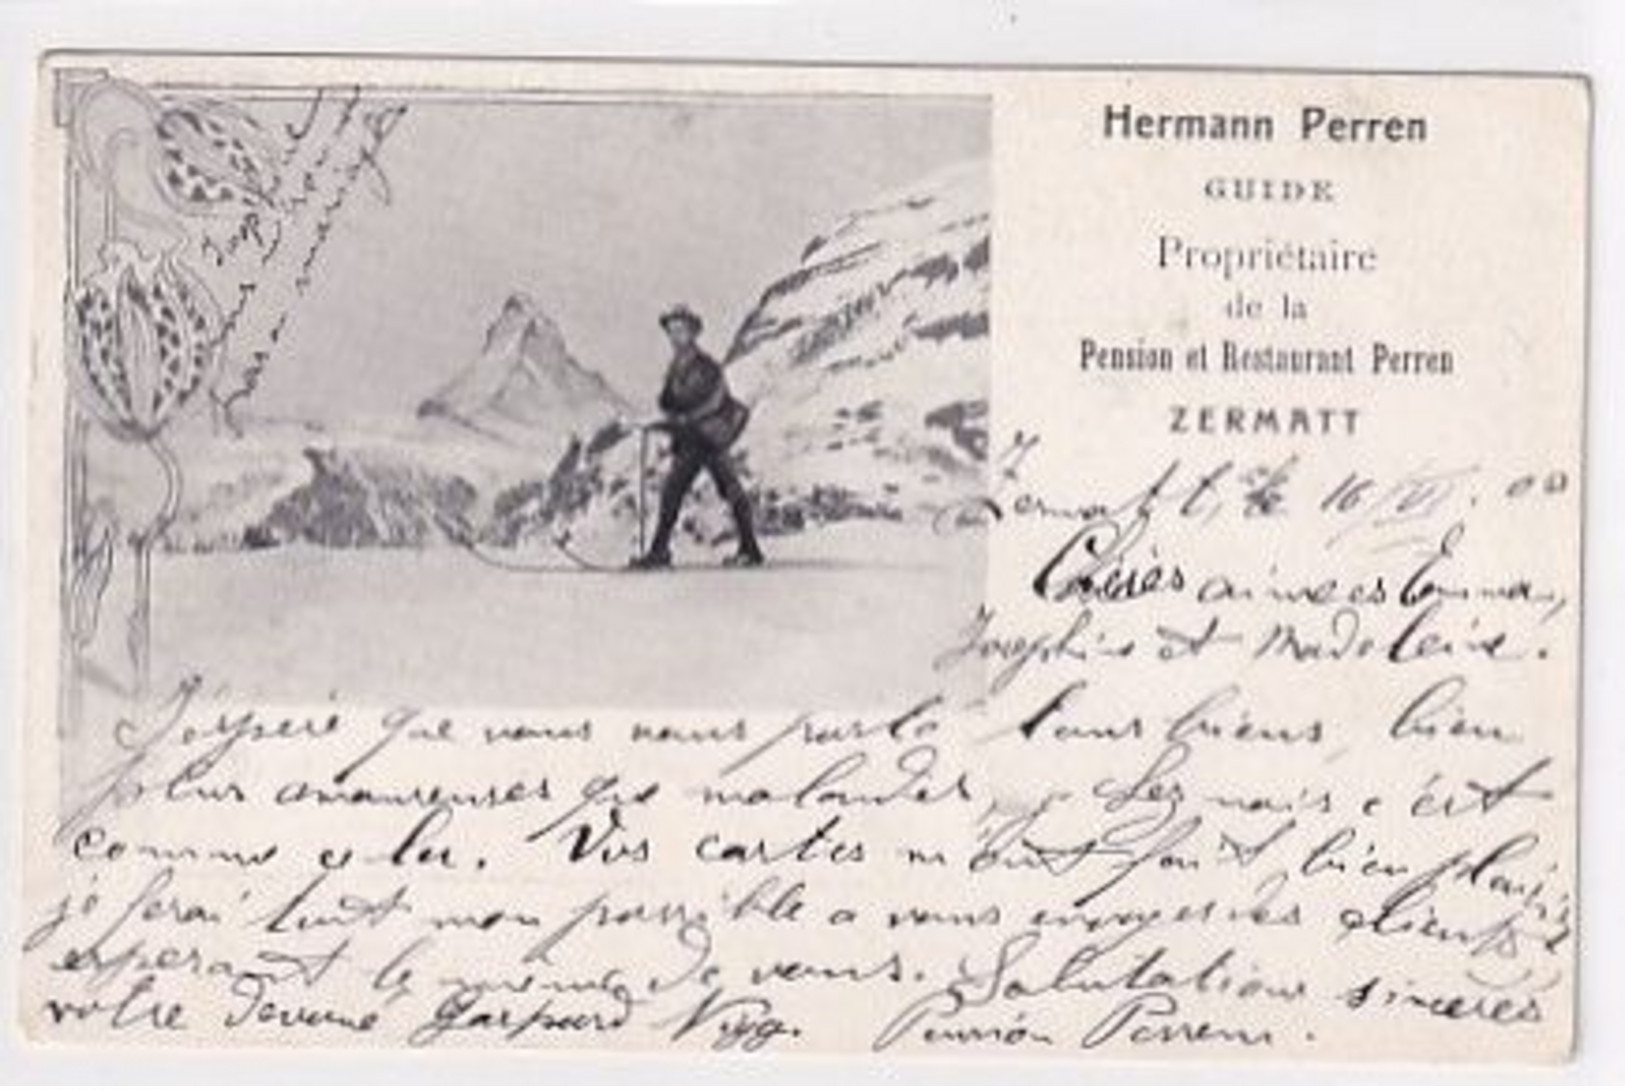 Hermann Perren
GUIDE
Propriétaire
de la
Pension et Restaurant Perren
ZERMATT
Zermatt, le 16
Chères aimées Emma,
Josephine et Madeleine.
J'esperé que vous tous biens, bien
plus amoureuses que malades, mais c'est
comme cela. Vos cartes m'ont fait bien plaisir
je ferai tout mon possible a vous envoyer des clients
esperant le meme de vous. Salutations sinceres
votre devoué Gaspard Pension Perren.